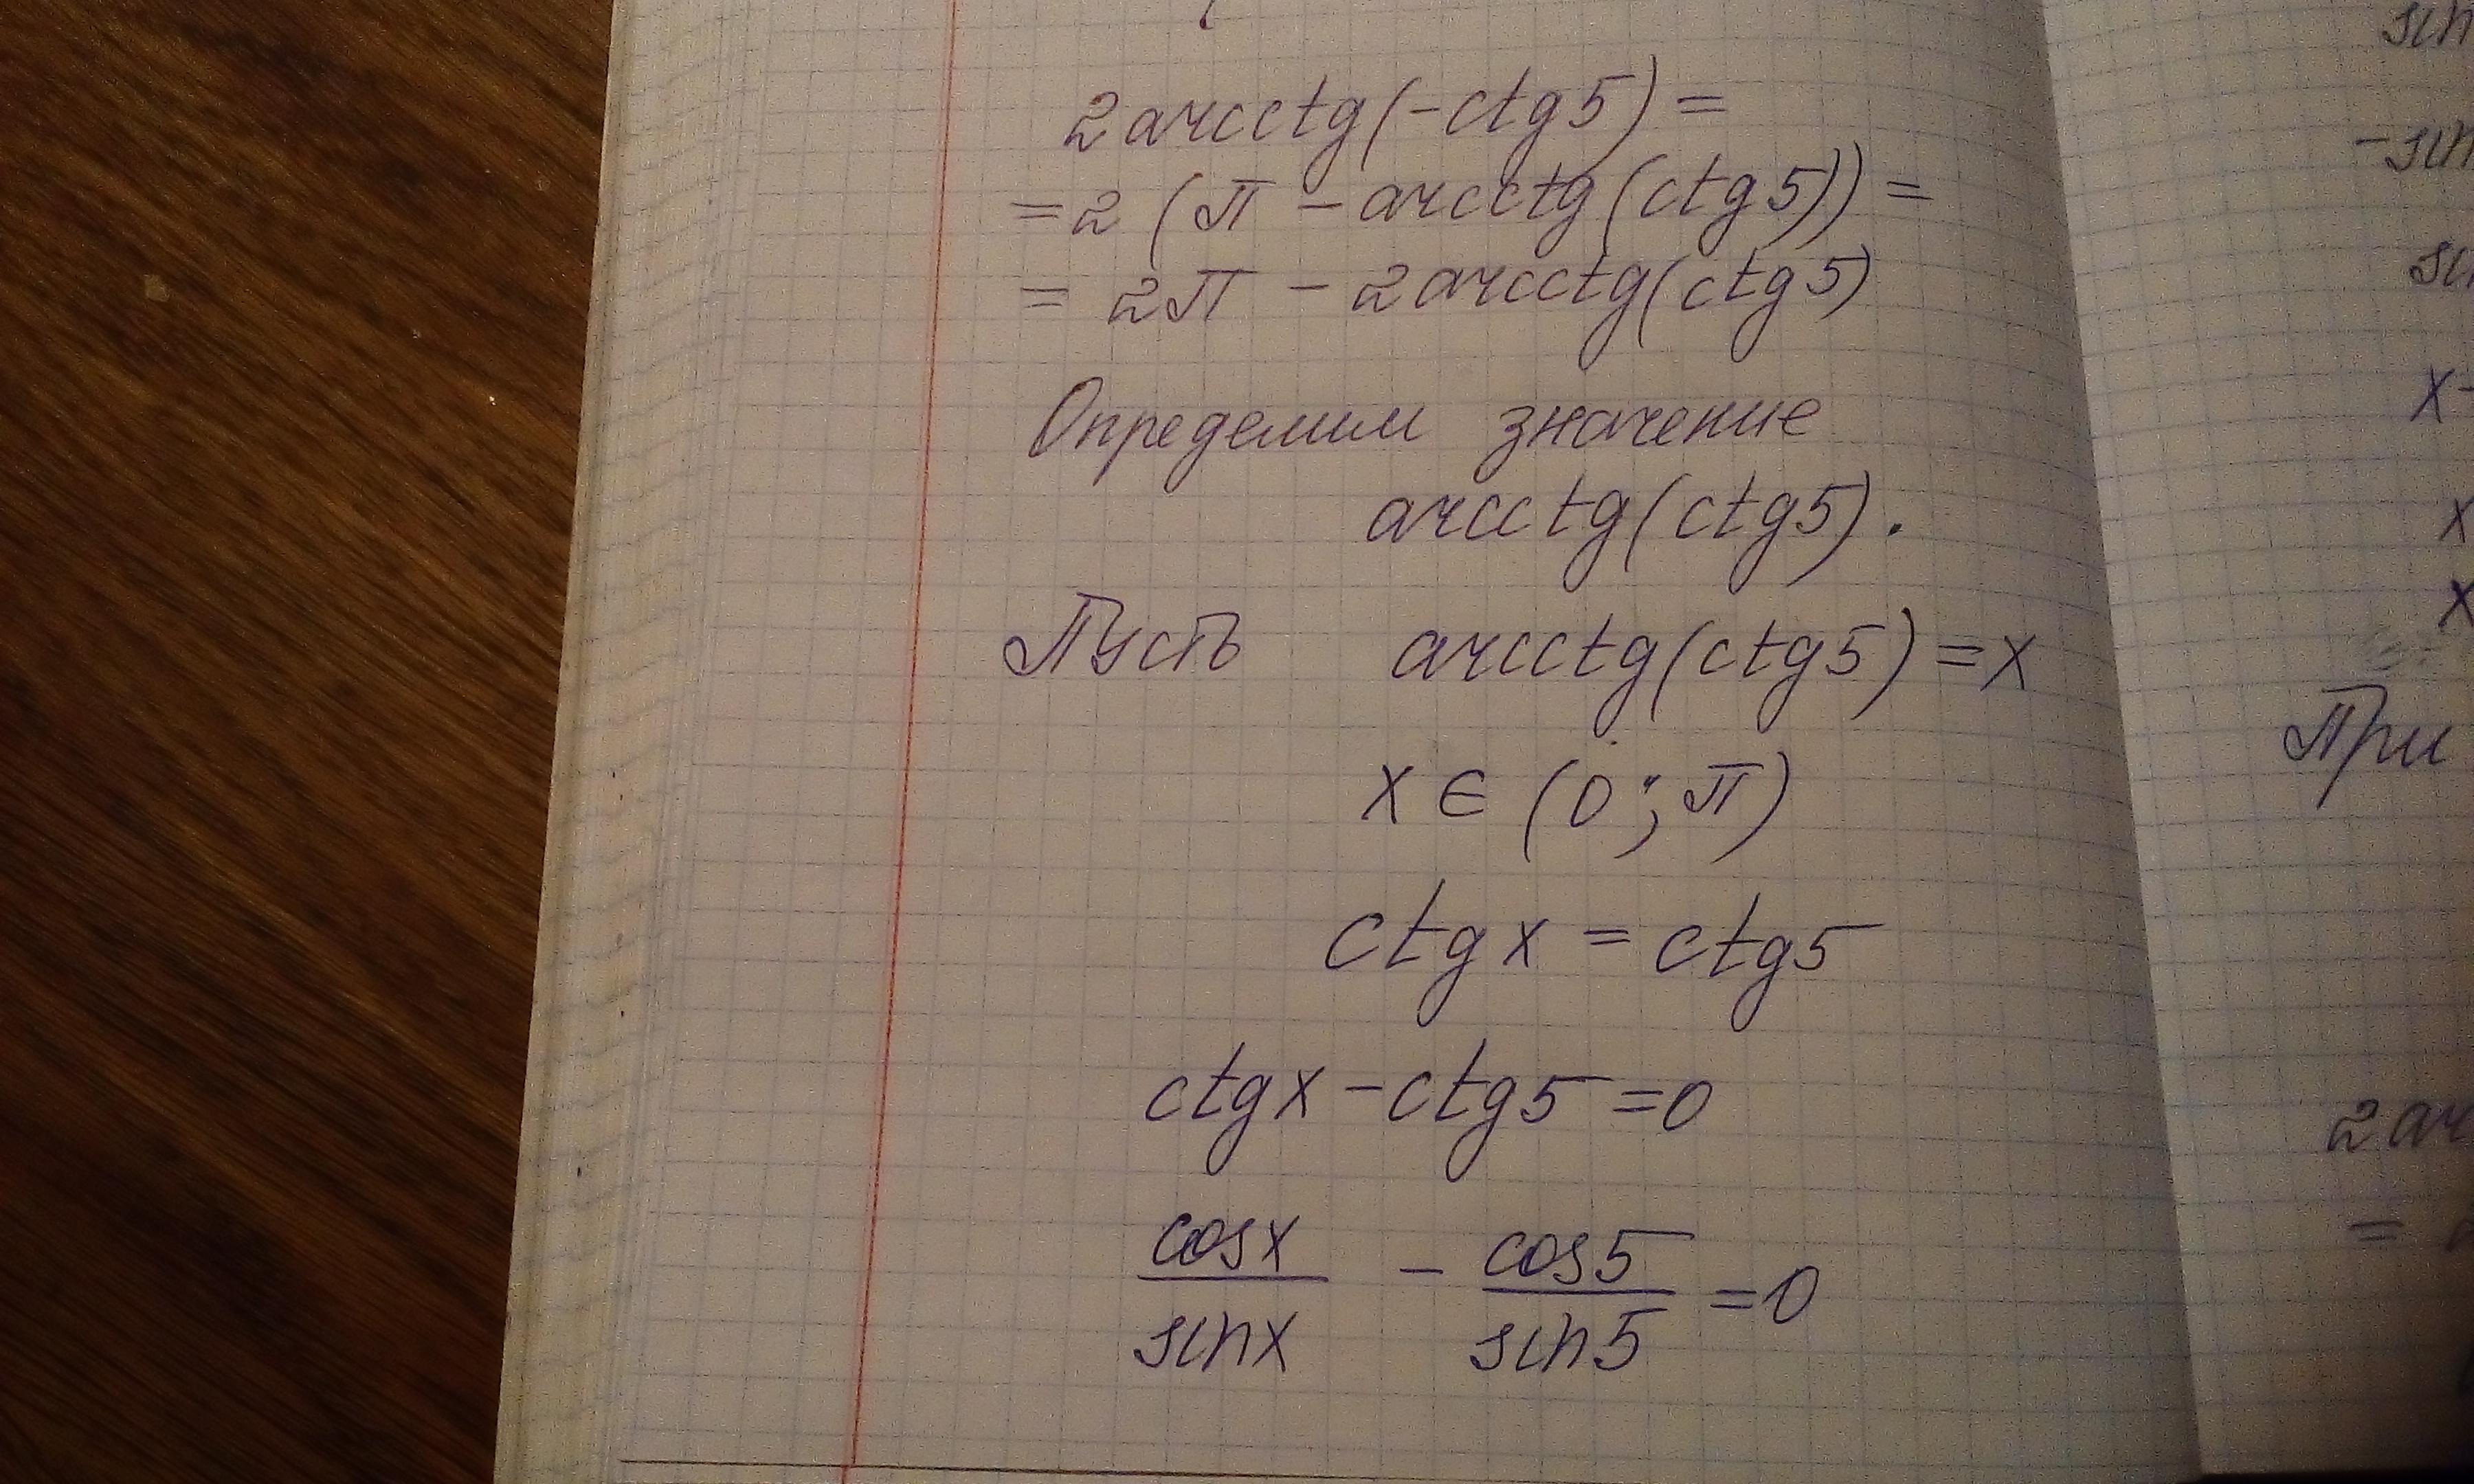 2arcctg(-ctg5) =
= 2 (π - arcctg(ctg5)) =
= 2π - 2arcctg(ctg5)
Определим значение
arcctg(ctg5).
Пусть arcctg(ctg5) = x
x ∈ (0; π)
ctg x = ctg5
ctgx - ctg5 = 0
cosx/sinx - cos5/sin5 = 0
sin
-sin
x-
x
x
При
2ar
=